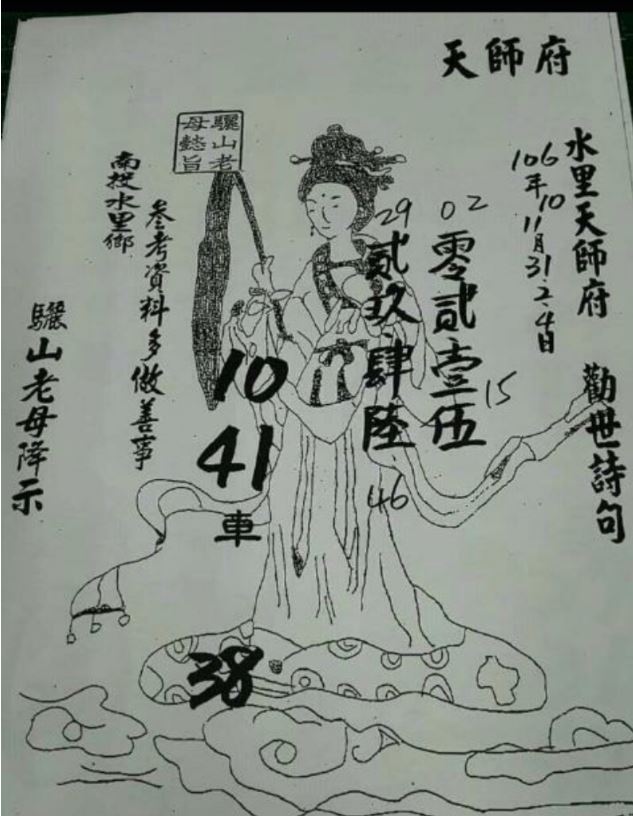 天師府
水里天師府 勸世詩句
106年10 11月31.2.4日
02
零貳壹伍
15
29
貳玖肆陸
46
驪山老
母懿旨
10
41
車
38
叁考資料多做善事
南投水里鄉
驪山老母降示